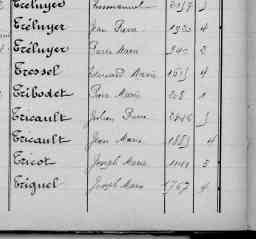 Tréluyer Emmanuel
Tréluyer Jean Pierre 1920 4
Tréluyer Pierre Marie 940 2
Tressel Edouard Marie 1615 4
Tribodet Pierre Marie 208 1
Tricault Julien Pierre 2846
Tricault Jean Marie 1883 4
Tricot Joseph Marie 3
Triguel Joseph Marie 1767 4